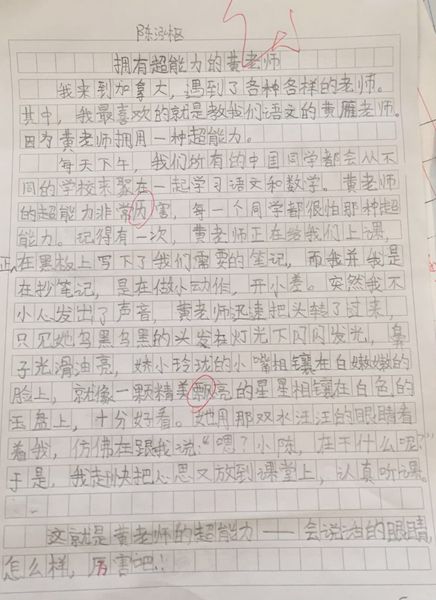 陈泓
拥有超能力的黄老师
我来到加拿大，遇到了各种各样的老师。
其中，我最喜欢的就是教我们语文的黄雁老师。
因为黄老师拥用一种超能力。
每天下午，我们所有的中国同学都会从不
同的学校来聚在一起学习语文和数学。黄老师
的超能力非常历害，每一个同学都很怕那种超
能力。记得有一次，黄老师正在给我们上课，
正在黑板上写下了我们需要的笔记，而我并不是
在抄笔记，是在做小动作，开小差。突然我不
小心发出了声音，黄老师迅速把头转了过来，
只见她乌黑乌黑的头发在灯光下闪闪发光，鼻
子光滑油亮，娇小玲珑的小嘴相镶在白嫩嫩的
脸上，就像一颗精美飘亮的星星相镶在白色的
玉盘上，十分好看。她用那双水汪汪的眼睛看
着我，仿佛在跟我说：“嗯？小陈，在干什么呢？”
于是，我赶快把心思又放到课堂上，认真听课。
这就是黄老师的超能力——会说话的眼睛，
怎么样，厉害吧！